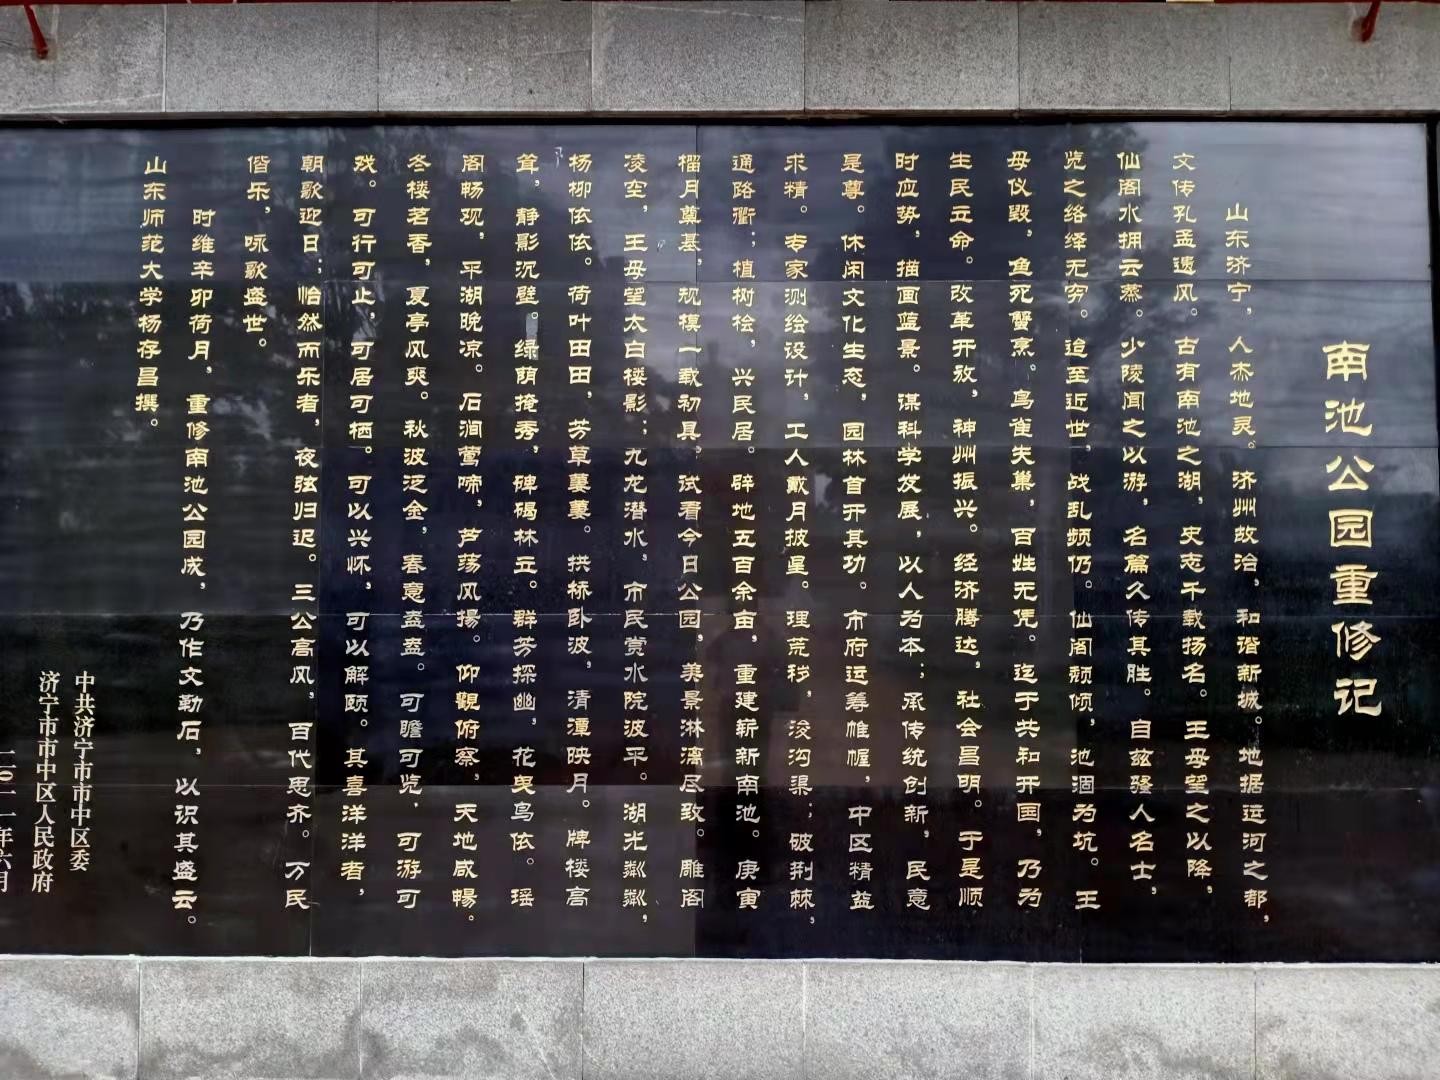 南池公园重修记
山东济宁，人杰地灵。济州故治，和谐新城。地据运河之都，
文传孔孟遗风。古有南池之湖，史志千载扬名。王母望之以降，
仙阁水拥云蒸。少陵闻之以游，名篇久传其胜。自兹骚人名士，
览之络绎无穷。迨至近世，战乱频仍。仙阁颓倾，池涸为坑。王
母仪毁，鱼死蟹烹。鸟雀失巢，百姓无凭。迄于共和开国，乃为
生民立命。改革开放，神州振兴。经济腾达，社会昌明。于是顺
时应势，描画蓝景。谋科学发展，以人为本；承传统创新，民意
是尊。休闲文化生态，园林首开其功。市府运筹帷幄，中区精益
求精。专家测绘设计，工人戴月披星。理荒秽，浚沟渠；破荆棘，
通路衢；植树桧，兴民居。辟地五百余亩，重建崭新南池。庚寅
榴月奠基，规模一载初具。试看今日公园，美景淋漓尽致。雕阁
凌空，王母望太白楼影；九龙潜水，市民赏水院波平。湖光粼粼，
杨柳依依。荷叶田田，芳草萋萋。拱桥卧波，清潭映月。牌楼高
耸，静影沉壁。绿荫掩秀，碑碣林立。群芳探幽，花曳鸟依。瑶
阁畅观，平湖晚凉。石涧莺啼，芦荡风揚。仰觀俯察，天地咸暢。
冬楼茗香，夏亭风爽。秋波泛金，春意盎盎。可瞻可览，可游可
戏。可行可止，可居可栖。可以兴怀，可以解颐。其喜洋洋者，
朝歌迎日；怡然而乐者，夜弦归迟。三公高风，百代思齐。万民
偕乐，咏歌盛世。
时维辛卯荷月，重修南池公园成，乃作文勒石，以识其盛云。
山东师范大学杨存昌撰。
中共济宁市市中区委
济宁市市中区人民政府
二〇一一年六月